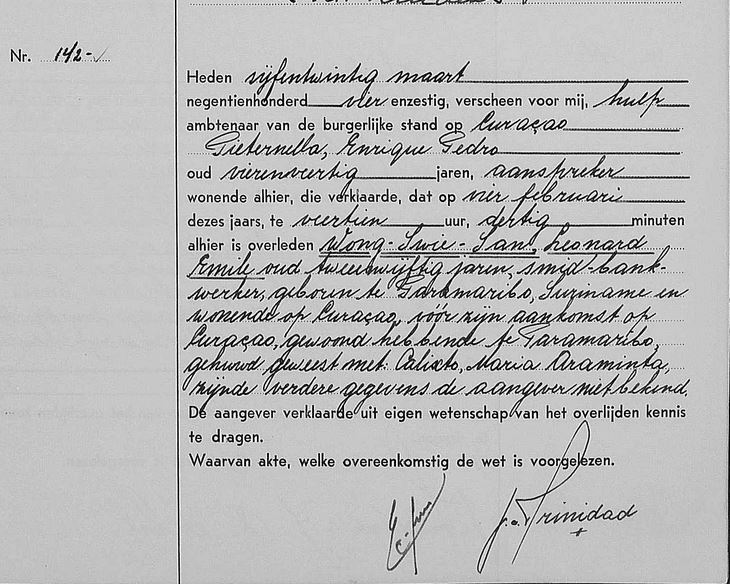 Nr. 142-
Heden vijfentwintig maart
negentienhonderd vier enzestig, verscheen voor mij, hulp
ambtenaar van de burgerlijke stand op Curaçao
Pieternella, Enrique Pedro
oud vierenveertig jaren, aanspreker
wonende alhier, die verklaarde, dat op vier februari
dezes jaars, te veertien uur, dertig minuten
alhier is overleden Wong-Swie-San, Leonard
Emile oud tweeenvijftig jaren, smid-bank-
werker, geboren te Paramaribo, Suriname en
wonende op Curaçao, vóór zijn aankomst op
Curaçao, gewoond hebbende te Paramaribo,
gehuwd geweest met: Calixto, Maria Araminta,
zijnde verdere gegevens de aangever niet bekend.
De aangever verklaarde uit eigen wetenschap van het overlijden kennis
te dragen.
Waarvan akte, welke overeenkomstig de wet is voorgelezen.
Trinidad